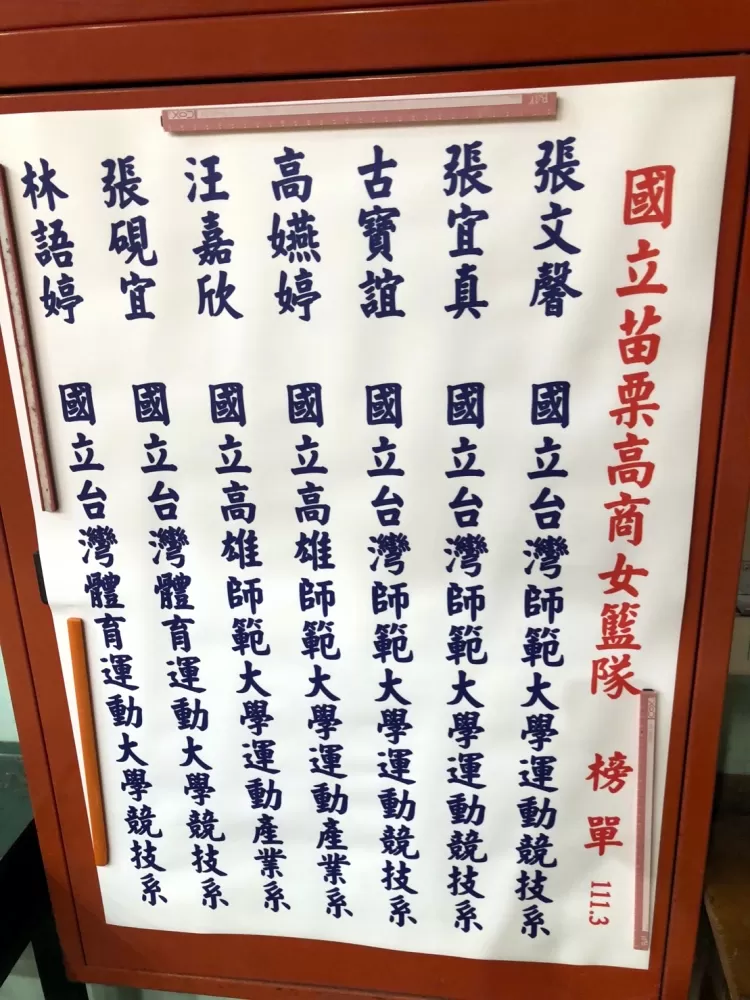 國立苗栗高商女籃隊 榜單 111.3
張文馨 國立台灣師範大學運動競技系
張宜真 國立台灣師範大學運動競技系
古寶誼 國立台灣師範大學運動競技系
高嬿婷 國立高雄師範大學運動產業系
汪嘉欣 國立高雄師範大學運動產業系
張硯宜 國立台灣體育運動大學競技系
林語婷 國立台灣體育運動大學競技系